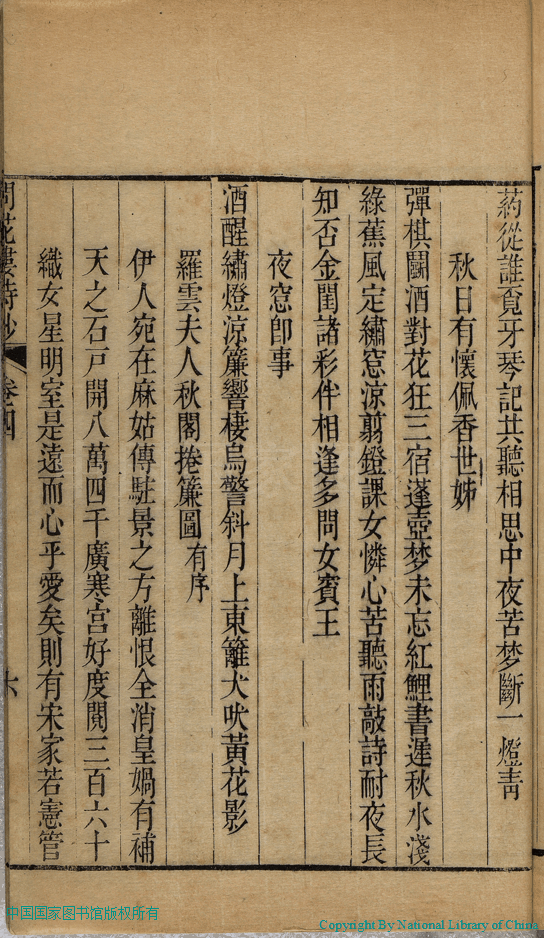 葯從誰覔牙琴記共聽相思中夜苦梦斷一燈青
秋日有懷佩香世姊
彈棋鬬酒對花狂三宿蓬壺梦未忘紅鯉書遲秋水淺
綠蕉風定繡窓涼翦鐙課女憐心苦聽雨敲詩耐夜長
知否金閨諸彩伴相逢多問女賓王
夜窓卽事
酒醒繡燈涼簾響棲烏警斜月上東籬犬吠黃花影
羅雲夫人秋閣捲簾圖有序
伊人宛在麻姑傳駐景之方離恨全消皇媧有補
天之石戸開八萬四千廣寒宮好度閱三百六十
織女星明室是遠而心乎愛矣則有宋家若憲管
問花樓詩鈔
卷四
六
中国国家图书馆版权所有
Copyright By National Library of China